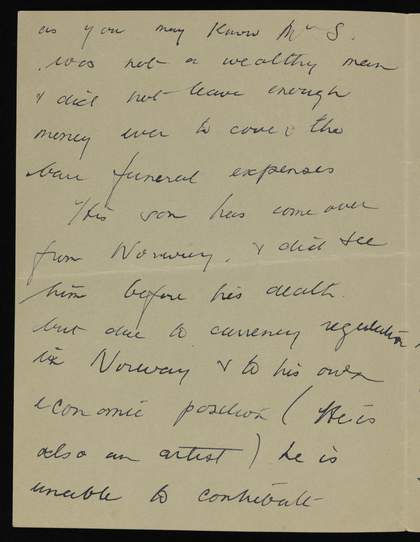 as you may know Mr S.
was not a wealthy man
& did not leave enough
money even to cover the
bare funeral expenses
His son has come over
from Norway, & did see
him before his death.
but due to currency regulation
in Norway & to his own
economic position (He is
also an artist) he is
unable to contribute